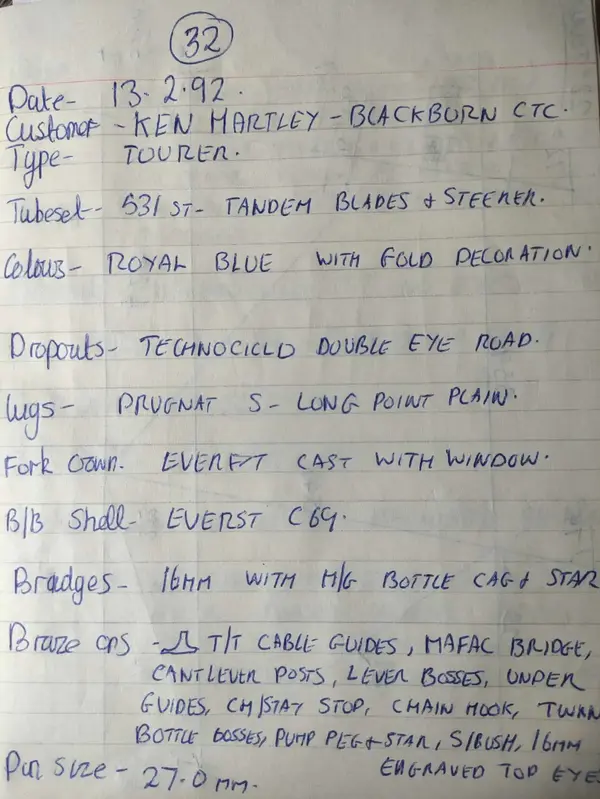 32
Date- 13.2.92.
Customer - KEN HARTLEY - BLACKBURN CTC.
Type- TOURER.
Tubeset- 531 ST- TANDEM BLADES & STEERER.
Colour- ROYAL BLUE WITH GOLD DECORATION.
Dropouts- TECHNOCICLO DOUBLE EYE ROAD.
Lugs- PRUGNAT S- LONG POINT PLAIN.
Fork Crown. EVEREST CAST WITH WINDOW.
B/B Shell- EVERST C69.
Bradges- 16MM WITH M/G BOTTLE CAG & STAR
Braze ons - T/T CABLE GUIDES, MAFAC BRIDGE,
CANTLEVER POSTS, LEVER BOSSES, UNDER
GUIDES, CH/STAY STOP, CHAIN HOOK, TWKN
BOTTLE BOSSES, PUMP PEG & STAR, S/BUSH, 16MM
ENGRAVED TOP EYE
Pin size - 27.0 MM.